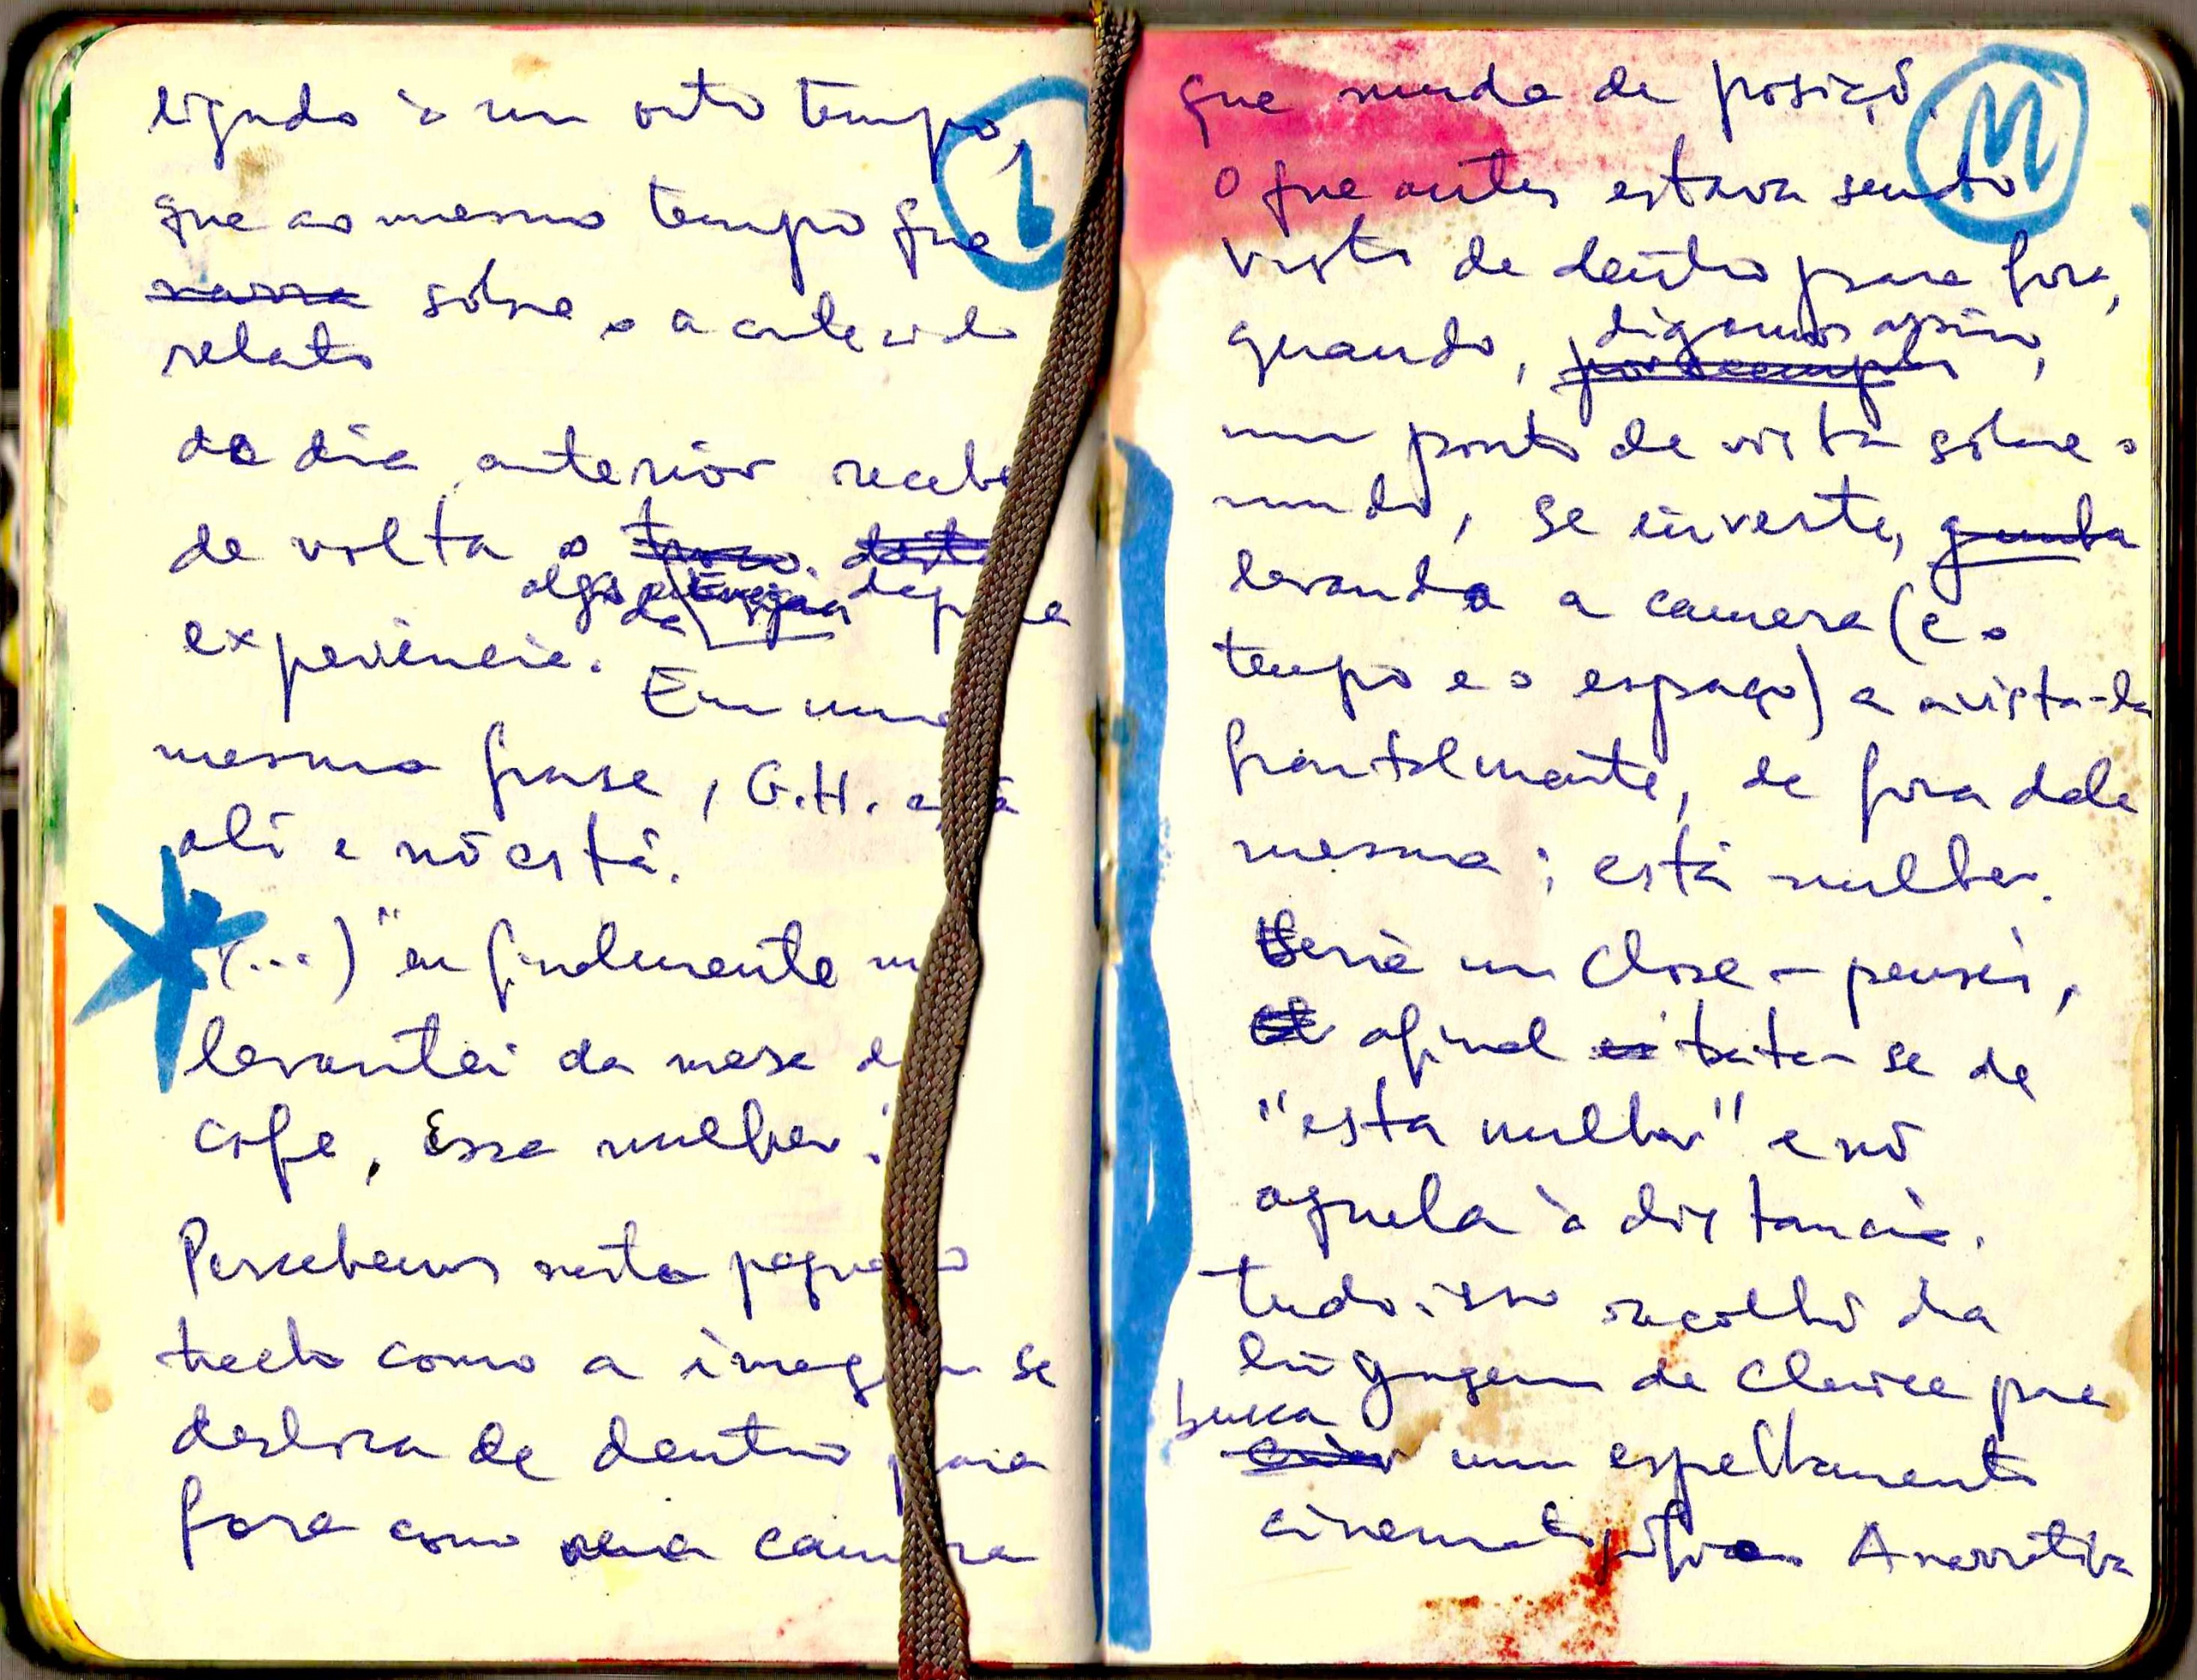 ligado à um outro tempo,
que ao mesmo tempo que
narra sobre o acontecido
relato
do dia anterior recebe
de volta o
algo da
experiência.
Em uma
mesma frase, G.H. está
ali e nõ está.
(...) "eu finalmente me
levantei da mesa do
café, Essa mulher."
Percebemos neste pequeno
trecho como a imagem se
desliza de dentro para
fora como uma camera
1
que muda de posição.
M
O que antes estava sendo
visto de dentro para fora,
digamos assim,
quando, por exemplo,
um ponto de vista sobre o
mundo, se inverte,
levando a camera (e o
tempo e o espaço) a avista-la
frontalmente, de fora dela
mesma: está mulher.
Seria um close - pensei,
afinal trata-se de
"esta mulher" e nõ
aquela à distancia.
Tudo isso recolhi da
linguagem de Clarice que
busca
criar um espelhamento
cinematográfico. A narrativa